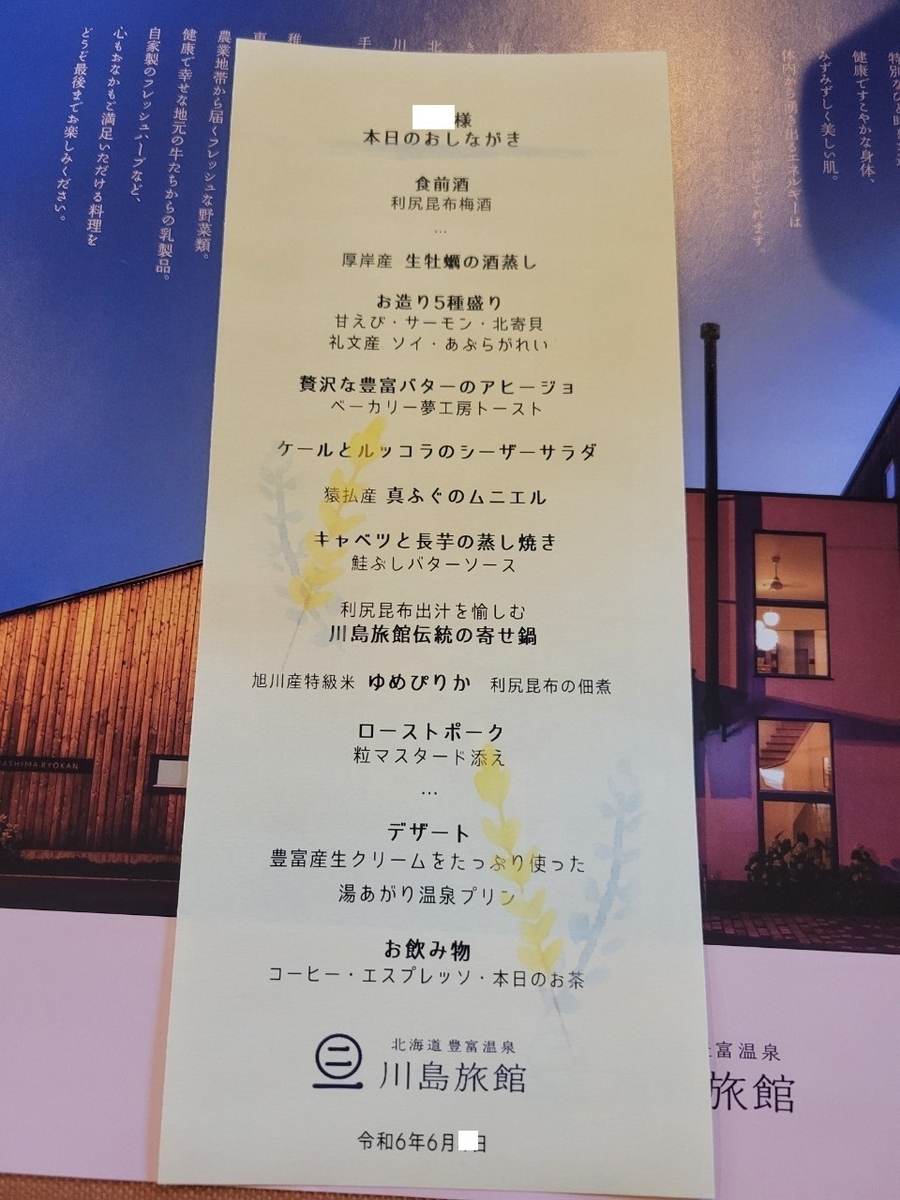 様
本日のおしながき
食前酒
利尻昆布梅酒
…
厚岸産 生牡蠣の酒蒸し
お造り5種盛り
甘えび・サーモン・北寄貝
礼文産 ソイ・あぶらがれい
贅沢な豊富バターのアヒージョ
ベーカリー夢工房トースト
ケールとルッコラのシーザーサラダ
猿払産 真ふぐのムニエル
キャベツと長芋の蒸し焼き
鮭ぶしバターソース
利尻昆布出汁を愉しむ
川島旅館伝統の寄せ鍋
旭川産特級米 ゆめぴりか 利尻昆布の佃煮
ローストポーク
粒マスタード添え
…
デザート
豊富産生クリームをたっぷり使った
湯あがり温泉プリン
お飲み物
コーヒー・エスプレッソ・本日のお茶
北海道 豊富温泉
川島旅館
令和6年6月 日
健康ですこやかな身体、
みずみずしく美しい肌。
農業地帯から届くフレッシュな野菜類。
健康で幸せな地元の牛たちからの乳製品。
自家製のフレッシュハーブなど、
心もおなかもご満足いただける料理を
どうぞ最後までお楽しみください。
ASHIMA RYOKAN
富温泉
旅館